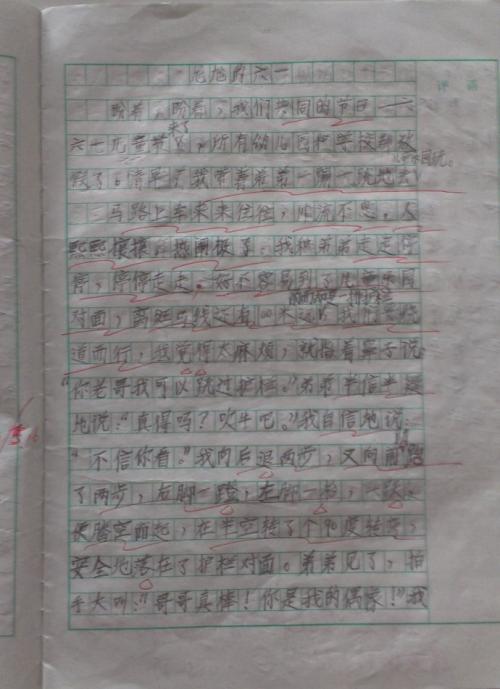 六一
盼着,盼着,我们共同的节日——六
来了
六一儿童节,所有的儿园和学校都放
假了。清早,我带着弟弟一蹦一跳地去
儿乐园玩。
马路上车来来往往,川流不息。人
熙熙攘攘,热闹极了。我和弟弟走走停
停,停停走走。好不容易到了儿童乐园
对面,离斑马线还有100米远,我们要绕
道而行,我觉得太麻烦,就指着鼻子说:
“你老哥我可以跳过护栏。”弟弟半信半疑
地说:“真得吗?吹牛吧。”我自信地说:
“不信你看。”我向后退两步,又向前跑
了两步,右脚一蹬,左脚一抬,一跃
便腾空而起,在半空转了个90度转弯,
安全地落在了护栏对面。弟弟见了,拍
手大叫:“哥哥真棒!你是我的偶像!”我